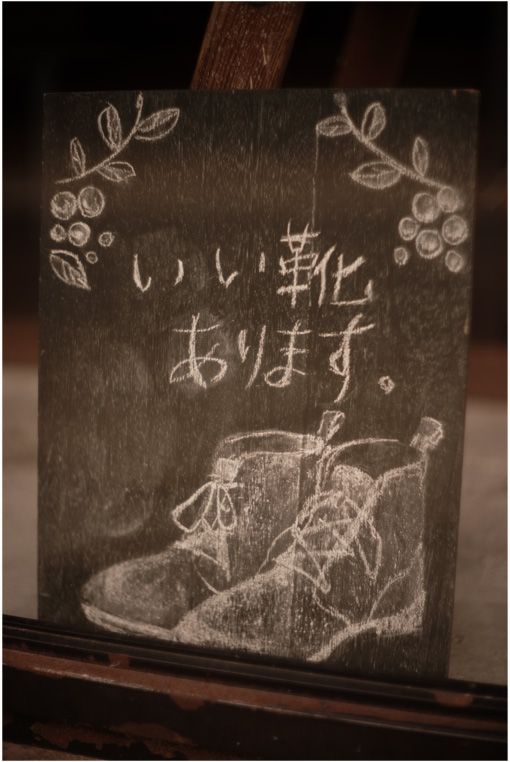 いい靴
あります。